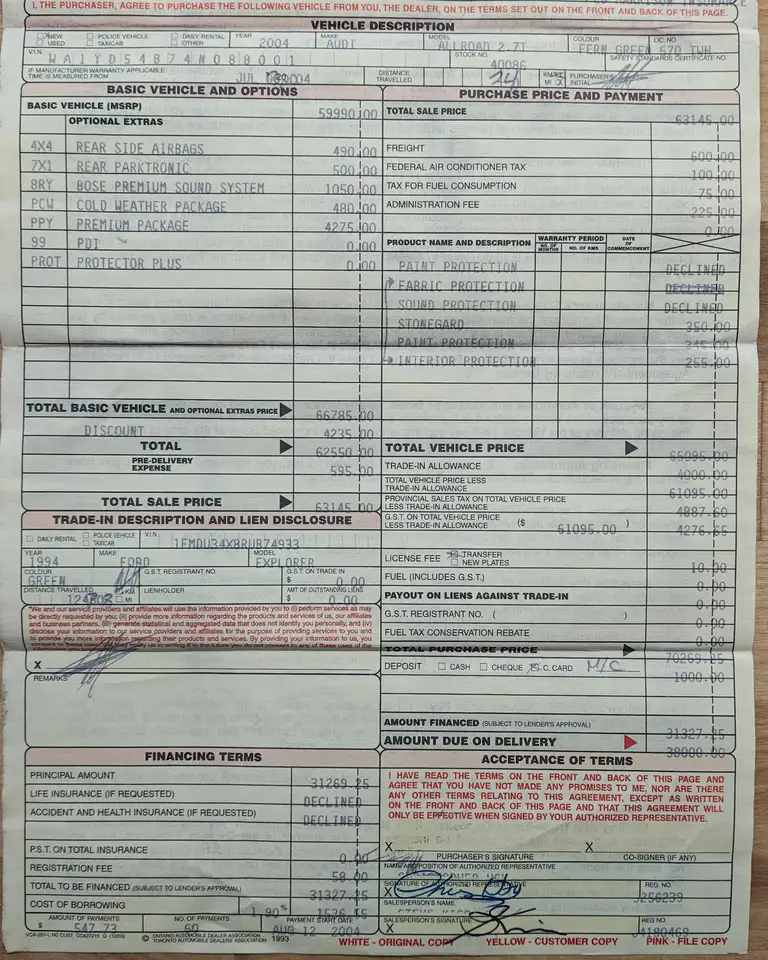 I, THE PURCHASER, AGREE TO PURCHASE THE FOLLOWING VEHICLE FROM YOU, THE DEALER, ON THE TERMS SET OUT ON THE FRONT AND BACK OF THIS PAGE.
VEHICLE DESCRIPTION
NEW USED POLICE VEHICLE TAXICAB DAILY RENTAL OTHER YEAR 2004 MAKE AUDI MODEL ALLROAD 2.7T COLOUR FERN GREEN LIC. NO. 570 TWH
V.I.N. WA1YD54B74N088001 STOCK NO. 40086 SAFETY STANDARDS CERTIFICATE NO.
IF MANUFACTURER WARRANTY APPLICABLE TIME IS MEASURED FROM JUL 2004 DISTANCE TRAVELLED 24 KM MI PURCHASER'S INITIAL
BASIC VEHICLE AND OPTIONS
BASIC VEHICLE (MSRP) 59990.00
OPTIONAL EXTRAS
4X4 REAR SIDE AIRBAGS 490.00
7X1 REAR PARKTRONIC 500.00
8RY BOSE PREMIUM SOUND SYSTEM 1050.00
PCW COLD WEATHER PACKAGE 480.00
PPY PREMIUM PACKAGE 4275.00
99 PDI 0.00
PROT PROTECTOR PLUS 0.00
TOTAL BASIC VEHICLE AND OPTIONAL EXTRAS PRICE 66785.00
DISCOUNT 4235.00
TOTAL 62550.00
PRE-DELIVERY EXPENSE 595.00
TOTAL SALE PRICE 63145.00
PURCHASE PRICE AND PAYMENT
TOTAL SALE PRICE 63145.00
FREIGHT 600.00
FEDERAL AIR CONDITIONER TAX 100.00
TAX FOR FUEL CONSUMPTION 75.00
ADMINISTRATION FEE 225.00
0.00
PRODUCT NAME AND DESCRIPTION WARRANTY PERIOD NO. OF MONTHS NO. OF KMS DATE OF COMMENCEMENT
PAINT PROTECTION DECLINED
FABRIC PROTECTION DECLINED
SOUND PROTECTION DECLINED
STONEGARD 350.00
PAINT PROTECTION 345.00
INTERIOR PROTECTION 255.00
TOTAL VEHICLE PRICE 65095.00
TRADE-IN ALLOWANCE 4000.00
TOTAL VEHICLE PRICE LESS TRADE-IN ALLOWANCE 61095.00
PROVINCIAL SALES TAX ON TOTAL VEHICLE PRICE LESS TRADE-IN ALLOWANCE 4887.60
G.S.T. ON TOTAL VEHICLE PRICE LESS TRADE-IN ALLOWANCE ($ 61095.00 ) 4276.65
LICENSE FEE TRANSFER NEW PLATES 10.00
FUEL (INCLUDES G.S.T.) 0.00
PAYOUT ON LIENS AGAINST TRADE-IN 0.00
G.S.T. REGISTRANT NO. ( ) 0.00
FUEL TAX CONSERVATION REBATE 0.00
TOTAL PURCHASE PRICE 70269.25
DEPOSIT CASH CHEQUE C. CARD M/C 1000.00
AMOUNT FINANCED (SUBJECT TO LENDER'S APPROVAL) 31327.25
AMOUNT DUE ON DELIVERY 38000.00
TRADE-IN DESCRIPTION AND LIEN DISCLOSURE
DAILY RENTAL POLICE VEHICLE TAXICAB V.I.N. 1FMDU34X8RUB74933
YEAR 1994 MAKE FORD MODEL EXPLORER
COLOUR GREEN G.S.T. REGISTRANT NO. G.S.T. ON TRADE IN $ 0.00
DISTANCE TRAVELLED KM MI LIENHOLDER AMT OF OUTSTANDING LIENS $ 0.00
"We and our service providers and affiliates will use the information provided by you to (i) perform services as may be directly requested by you, (ii) provide more information regarding the products and services of us, our affiliates and business partners, (iii) generate statistical and aggregated data that does not identify you personally, and (iv) disclose your information to our service providers and affiliates for the purpose of providing services to you and to provide you more information regarding their products and services.
X
REMARKS
FINANCING TERMS
PRINCIPAL AMOUNT 31269.25
LIFE INSURANCE (IF REQUESTED) DECLINED
ACCIDENT AND HEALTH INSURANCE (IF REQUESTED) DECLINED
P.S.T. ON TOTAL INSURANCE 0.00
REGISTRATION FEE 58.00
TOTAL TO BE FINANCED (SUBJECT TO LENDER'S APPROVAL) 31327.25
COST OF BORROWING 1.90%
AMOUNT OF PAYMENTS $ 547.73 NO. OF PAYMENTS 60 PAYMENT START DATE AUG 12 2004
ACCEPTANCE OF TERMS
I HAVE READ THE TERMS ON THE FRONT AND BACK OF THIS PAGE AND AGREE THAT YOU HAVE NOT MADE ANY PROMISES TO ME, NOR ARE THERE ANY OTHER TERMS RELATING TO THIS AGREEMENT, EXCEPT AS WRITTEN ON THE FRONT AND BACK OF THIS PAGE AND THAT THIS AGREEMENT WILL ONLY BE EFFECTIVE WHEN SIGNED BY YOUR AUTHORIZED REPRESENTATIVE.
X X
PURCHASER'S SIGNATURE CO-SIGNER (IF ANY)
NAME AND POSITION OF AUTHORIZED REPRESENTATIVE
SIGNATURE OF AUTHORIZED REPRESENTATIVE REG. NO.
X 3256239
SALESPERSON'S NAME
SALESPERSON'S SIGNATURE REG NO.
X 4180469
© ONTARIO AUTOMOBILE DEALER ASSOCIATION TORONTO AUTOMOBILE DEALERS' ASSOCIATION 1993
WHITE - ORIGINAL COPY YELLOW - CUSTOMER COPY PINK - FILE COPY